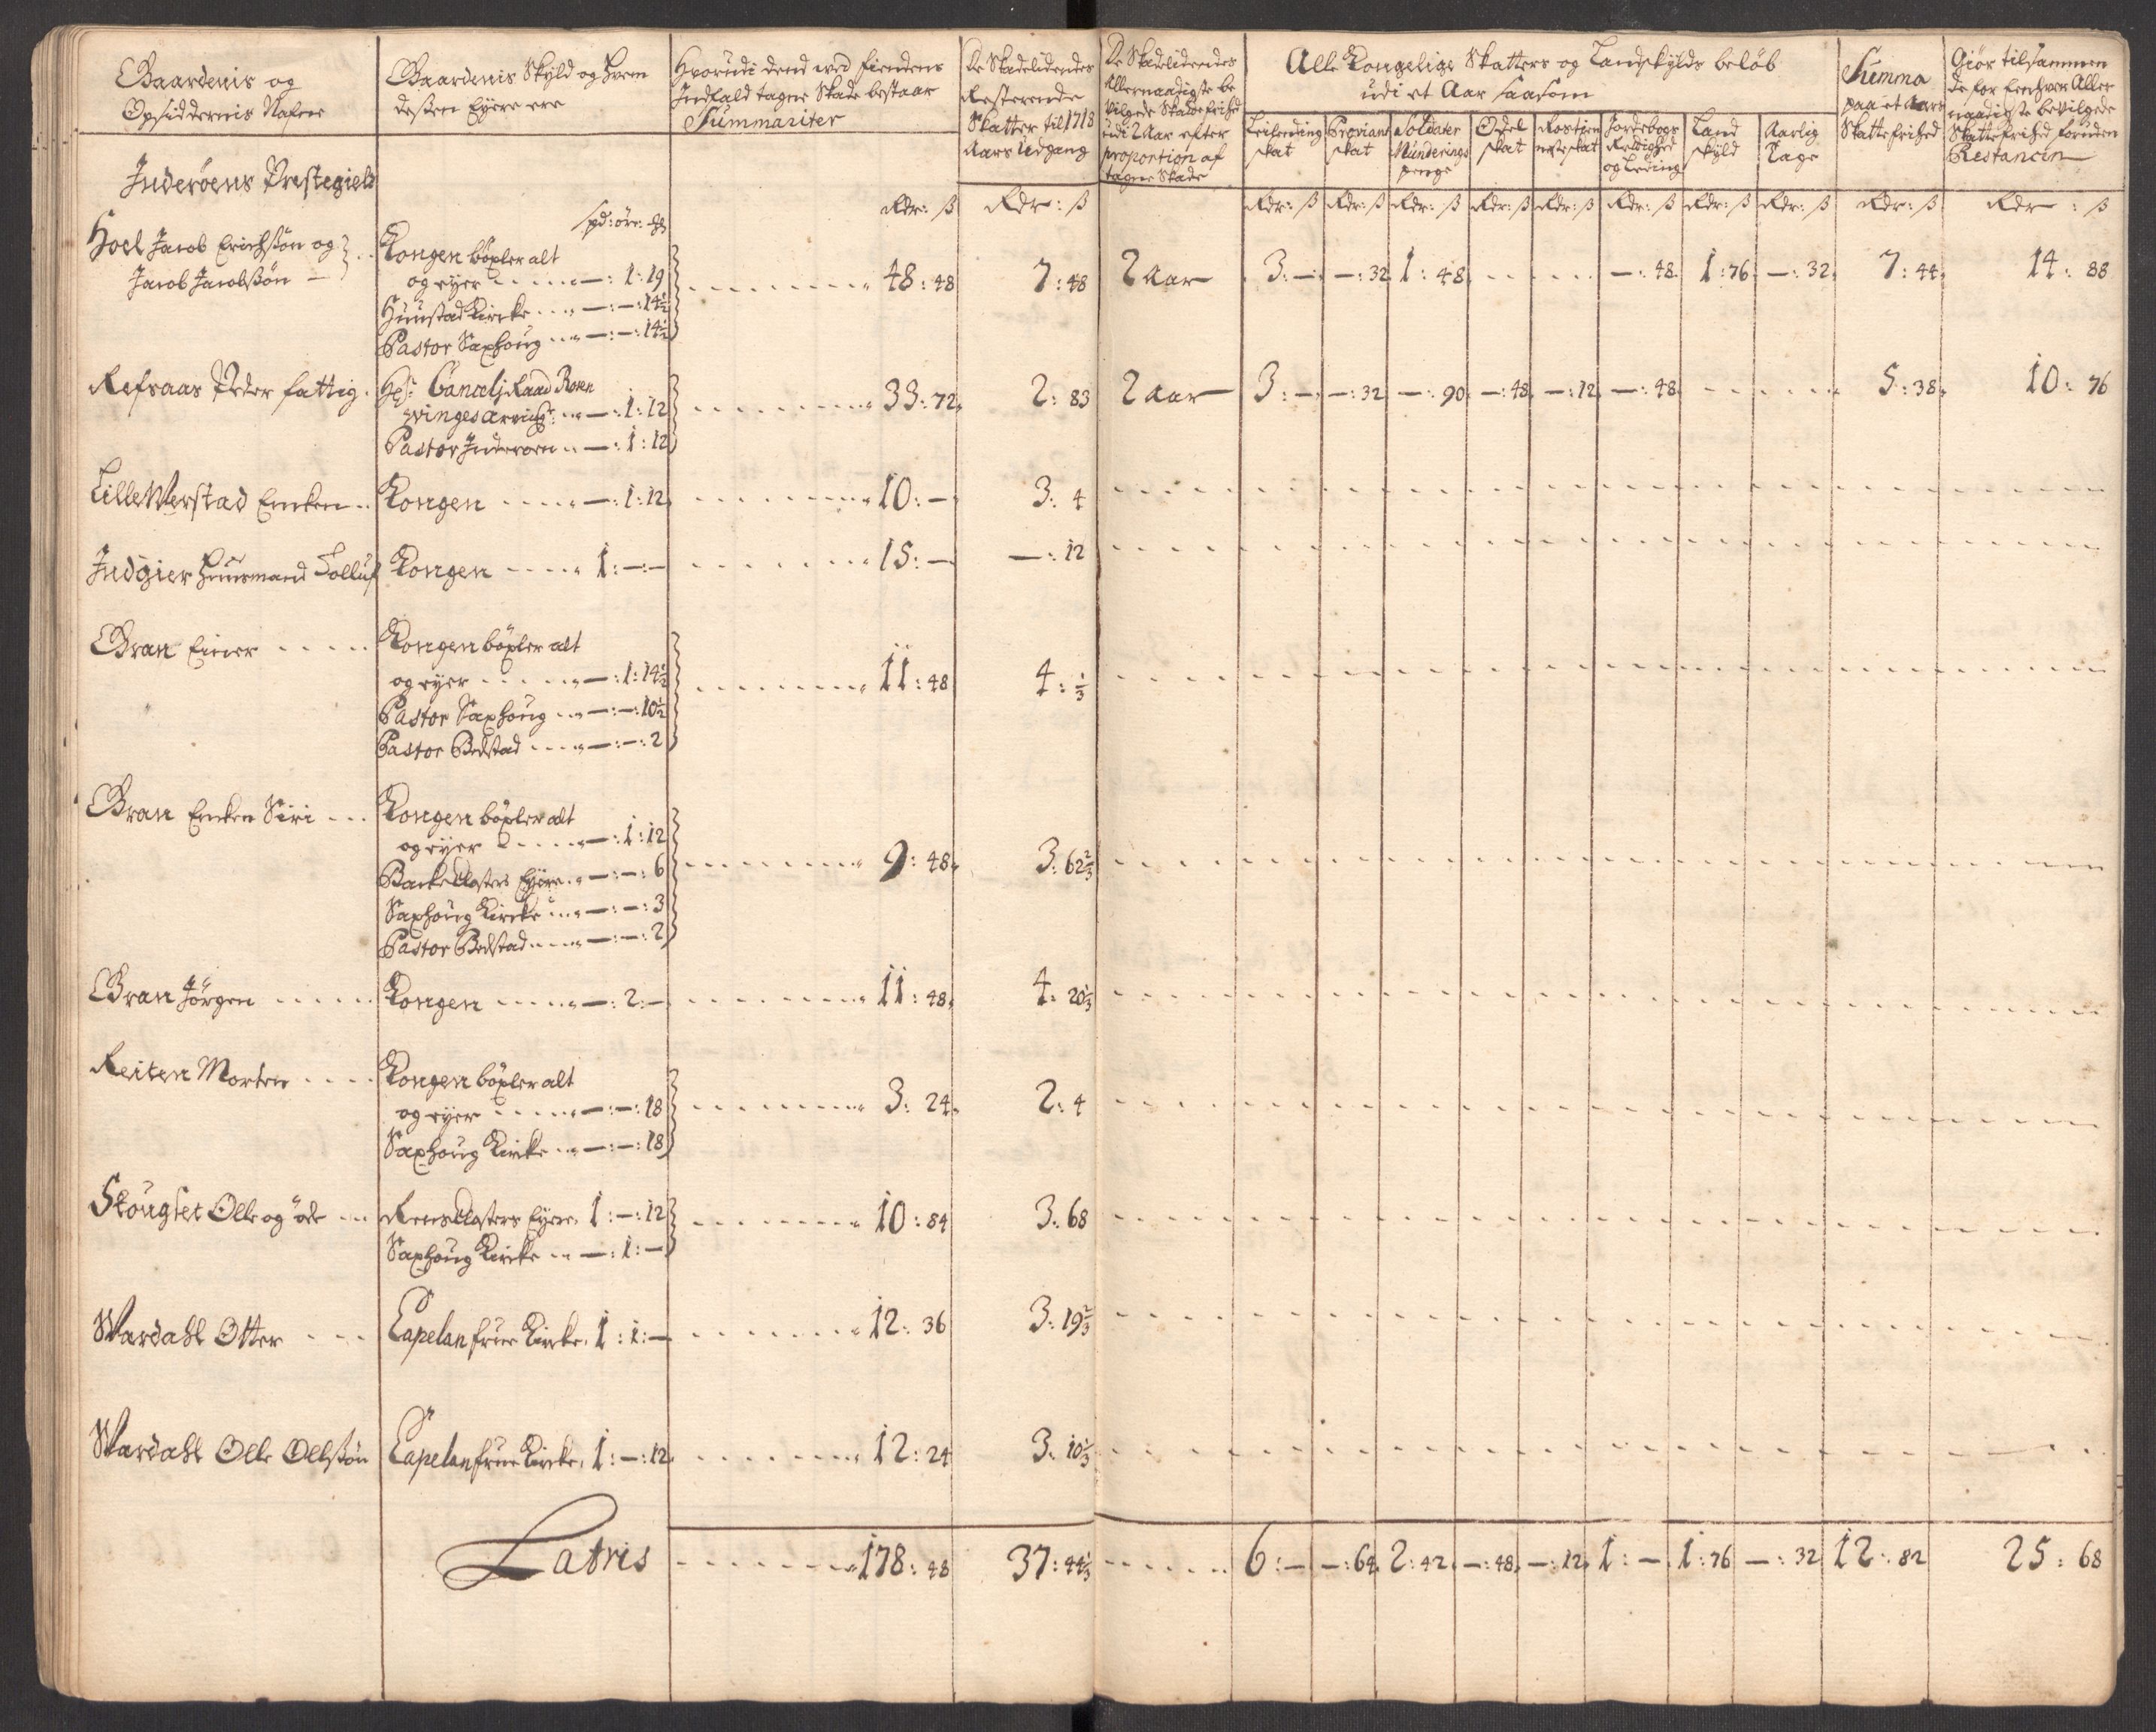 Gaardenis og
Opsiddernis Nafne
Gaardenis Skyld og hvem
dessen Eyere ere
Hvorudi dend ved Fiendens
Indfald tagne Skade bestaar
Summariter
De Skadelidendes
Resterende
Skatter til 1718
Aars Udgang
De Skadelidendes
Allernaadigste be
vilgede Skatte frihed
udi 2 Aar efter
proportion af
tagne Skade
Alle Kongelige Skatters og Landskylds beløb
udi et Aar saasom
Leilending
skat
Proviant
skat
Soldater
Munderings
penge
Odel
skat
Rostien
neste skat
Jordebogs
Rettighed
og Leding
Land
skyld
Aarlig
Tage
Summa
paa et Aars
Skatte frihed
Giør tilsammen
de for Eenhver Aller
naadigste bevilgede
Skatte frihed foruden
Restancen
Inderøens Prestegield
spd: øre: mkl
Rdr: ß Rdr: ß Rdr: ß Rdr: ß Rdr: ß Rdr: ß Rdr: ß Rdr: ß Rdr: ß Rdr: ß Rdr: ß Rdr: ß
Hoel Jacob Erichssøn og
Jacob Jacobssøn —
Kongen böxler alt
og eyer — : 1 : 19
Hustad Kirke — : — : 14½
Pastor Saxhoug — : — : 14½
48 : 48 7 : 48 2 Aar 3 : — — : 32 1 : 48 — : 48 1 : 76 — : 32 7 : 44 14 : 88
Refsaas Peder fattig
Hr: Cancelj Raad Rosen
vinges arving: — : 1 : 12
Pastor Inderøen — : 1 : 12
33 : 72 2 : 83 2 Aar 3 : — — : 32 — : 90 — : 48 — : 12 — : 48 5 : 38 10 : 76
Lille Werstad Encken Kongen — : 1 : 12 10 : — 3 : 4
Indgier Huusmand Tolluf Kongen 1 : — : — 15 : — — : 12
Gran Einer
Kongen böxler alt
og eyer — : 1 : 14½
Pastor Saxhoug — : — : 10½
Pastor Bedstad — : — : 2
11 : 48 4 : ⅓
Gran Encken Siri
Kongen böxler alt
og eyer — : 1 : 12
Backe Closters Eyere — : — : 6
Saxhoug Kircke — : — : 3
Pastor Bedstad — : — : 2
9 : 48 3 : 62⅔
Gran Jörgen Kongen — : 2 : — 11 : 48 4 : 20⅓
Reiten Morten
Kongen böxler alt
og eyer — : — : 18
Saxhoug Kircke — : — : 18
3 : 24 2 : 4
Skougset Olle og öde Rens Closters Eyere 1 : — : 12
Saxhoug Kircke — : 1 : —
10 : 84 3 : 68
Wardahl Otter Capelan frue Kircke 1 : 1 : — 12 : 36 3 : 19⅔
Wardahl Olle Ollssøn Capelan frue Kircke 1 : — : 12 12 : 24 3 : 10⅓
Latris 178 : 48 37 : 44⅓ 6 : — — : 64 2 : 42 — : 48 — : 12 1 : — 1 : 76 — : 32 12 : 82 25 : 68